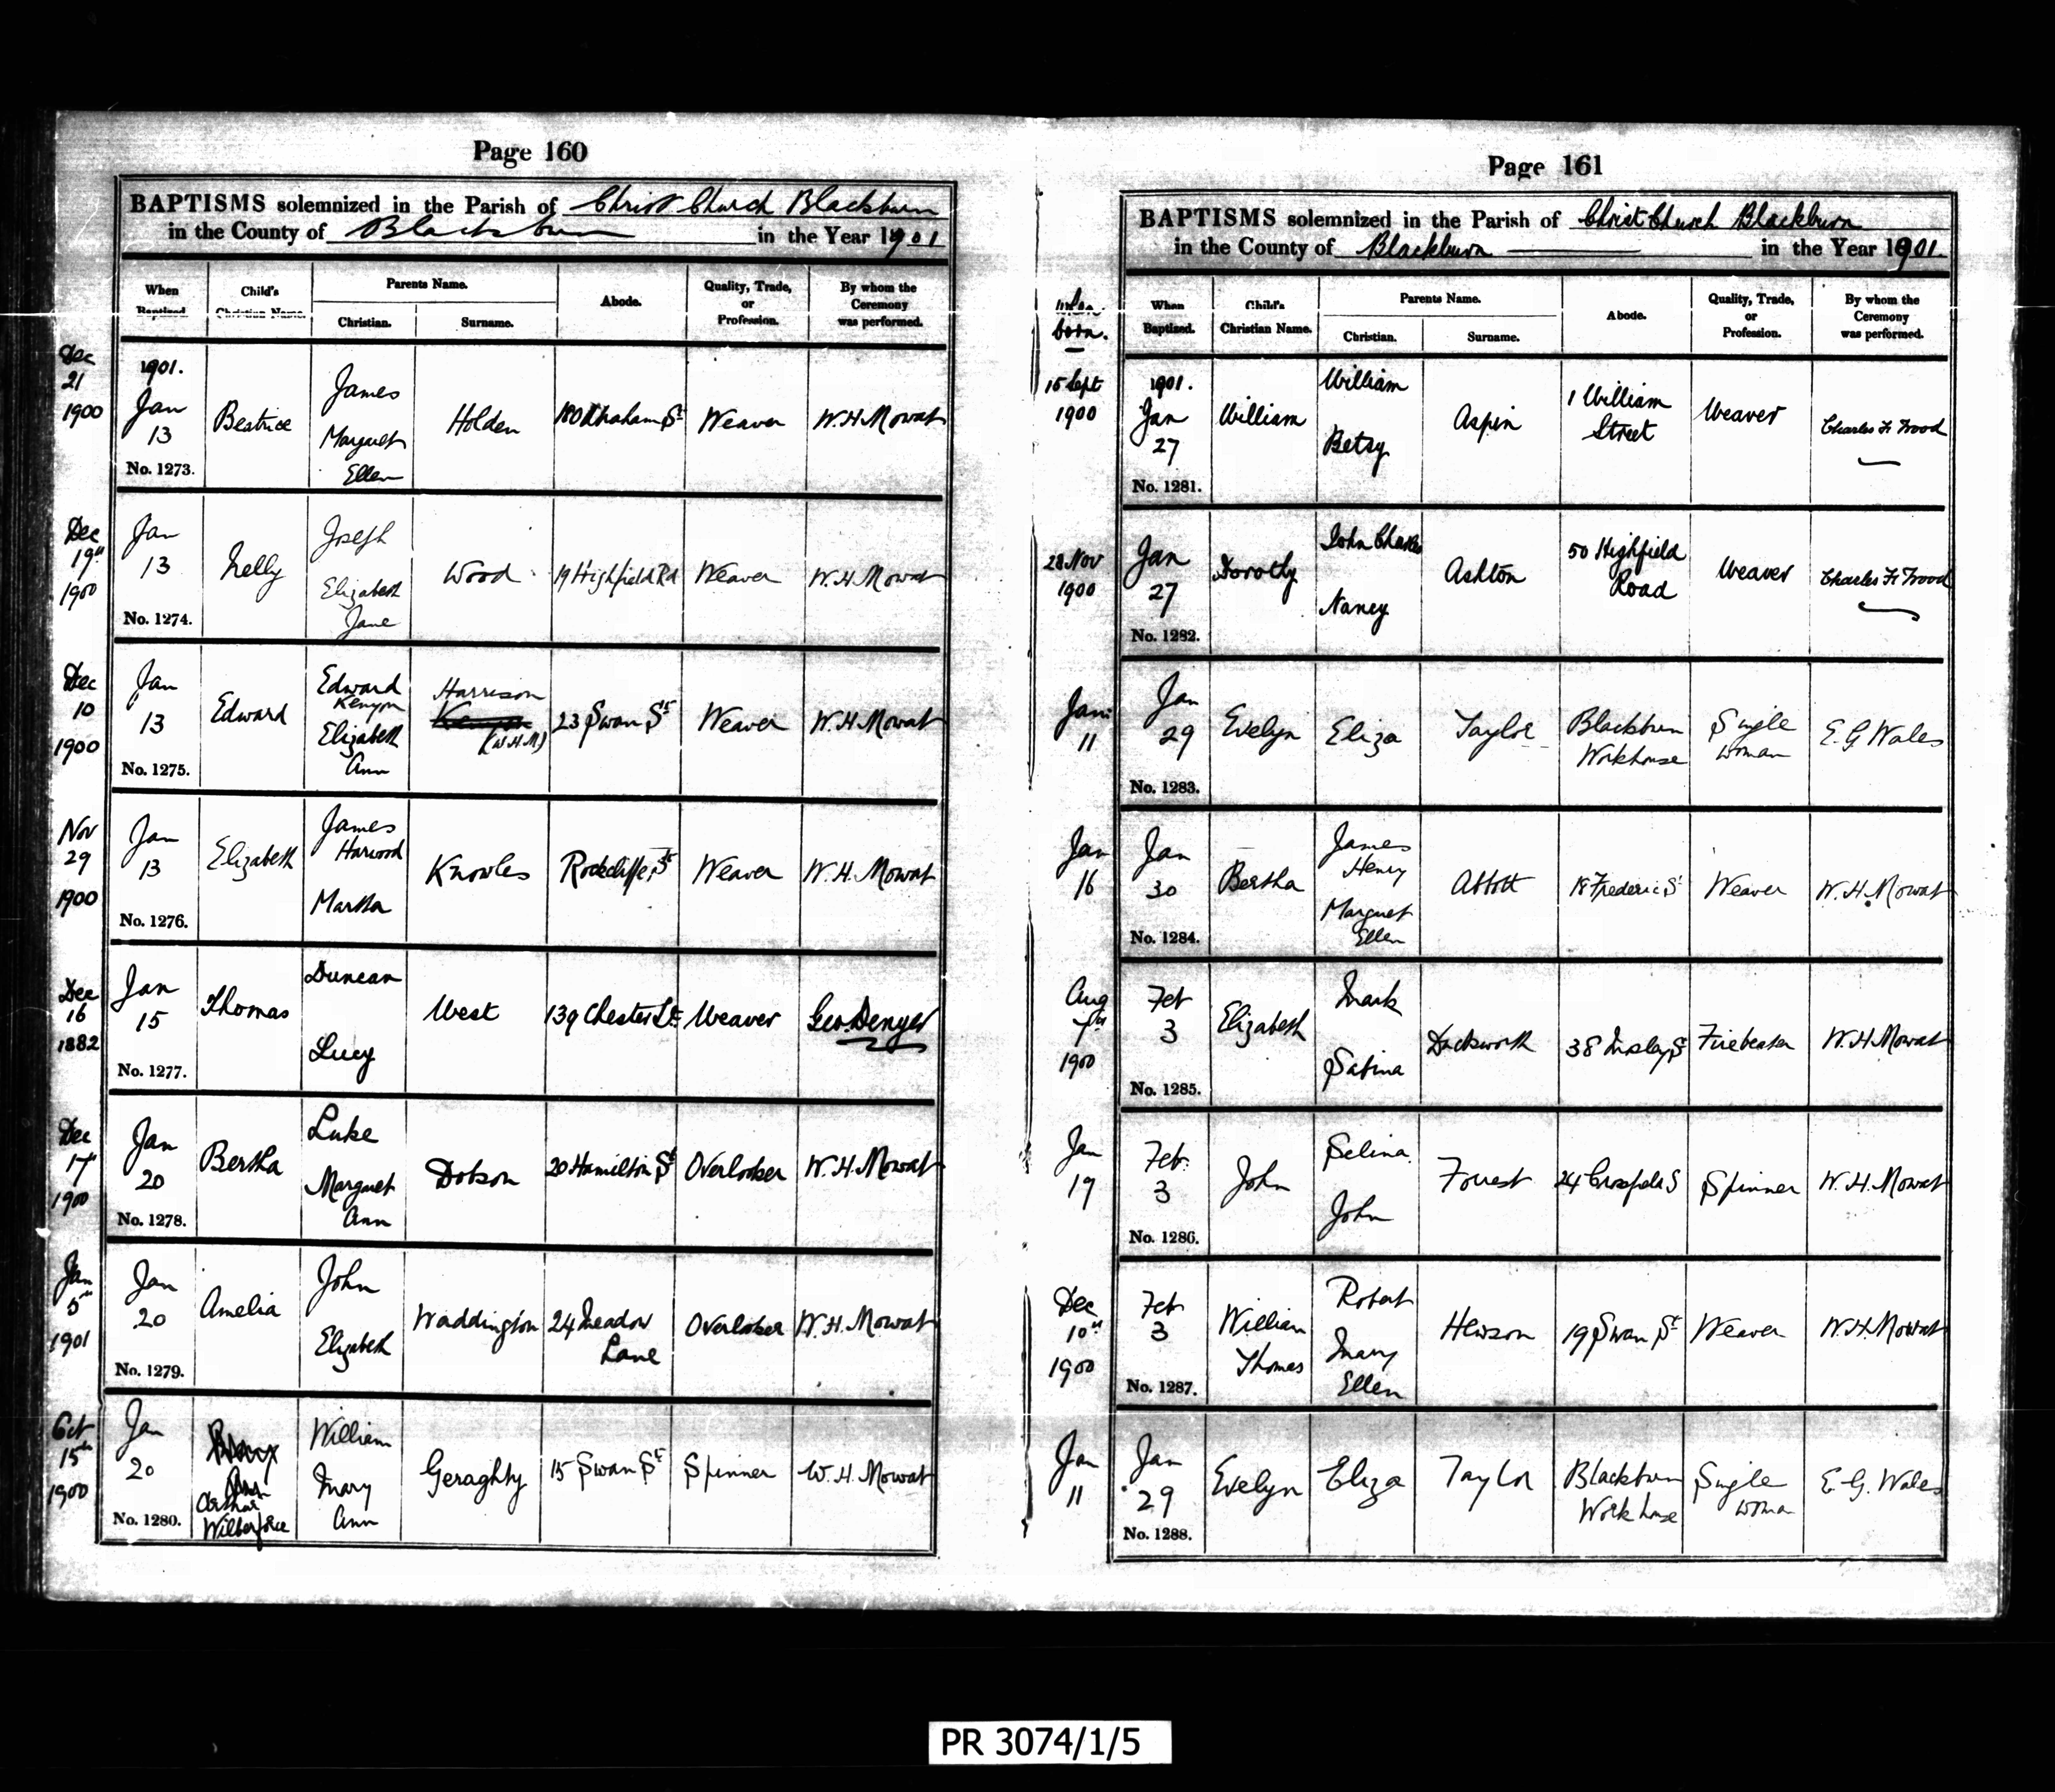 Page 160
BAPTISMS solemnized in the Parish of Christ Church Blackburn
in the County of Blackburn in the Year 1901
When Baptized. Child's Christian Name. Parents Name. Christian. Surname. Abode. Quality, Trade, or Profession. By whom the Ceremony was performed.
Dec 21 1900 1901. Jan 13 No. 1273. Beatrice James Margaret Ellen Holden 180 Abraham St Weaver W.H. Mowat
Dec 19th 1900 Jan 13 No. 1274. Nelly Joseph Elizabeth Jane Wood 19 Highfield Rd Weaver W.H. Mowat
Dec 10 1900 Jan 13 No. 1275. Edward Edward Kenyon Elizabeth Ann Harrison (W.H.M) 23 Swan St Weaver W.H. Mowat
Nov 29 1900 Jan 13 No. 1276. Elizabeth James Harwood Martha Knowles Rockcliffe St Weaver W.H. Mowat
Dec 16 1882 Jan 15 No. 1277. Thomas Duncan Lucy West 139 Chester St Weaver Geo. Denyer
Dec 17 1900 Jan 20 No. 1278. Bertha Luke Margaret Ann Dobson 20 Hamilton St Overlooker W.H. Mowat
Jan 5th 1901 Jan 20 No. 1279. Amelia John Elizabeth Waddington 24 Meadow Lane Overlooker W.H. Mowat
Oct 15th 1900 Jan 20 No. 1280. Arthur Wilberforce William Mary Ann Geraghty 15 Swan St Spinner W.H. Mowat
Page 161
BAPTISMS solemnized in the Parish of Christ Church Blackburn
in the County of Blackburn in the Year 1901.
when born. When Baptized. Child's Christian Name. Parents Name. Christian. Surname. Abode. Quality, Trade, or Profession. By whom the Ceremony was performed.
15 Sept 1900 1901. Jan 27 No. 1281. William William Betsy Aspin 1 William Street Weaver Charles F. Wood
28 Nov 1900 Jan 27 No. 1282. Dorothy John Charles Nancy Ashton 50 Highfield Road Weaver Charles F. Wood
Jan 11 Jan 29 No. 1283. Evelyn Eliza Taylor Blackburn Workhouse Single woman E.G Wales
Jan 16 Jan 30 No. 1284. Bertha James Henry Margaret Ellen Abbott 18 Frederic St Weaver W.H. Mowat
Aug 1900 Feb 3 No. 1285. Elizabeth Mark Sabina Duckworth 38 Mosley St Firebeater W.H. Mowat
Jan 19 Feb. 3 No. 1286. John Selina John Forrest 24 Spinner W.H. Mowat
Dec 10th 1900 Feb. 3 No. 1287. William Thomas Robert Mary Ellen Hewson 19 Swan St Weaver W.H. Mowat
Jan 11 Jan 29 No. 1288. Evelyn Eliza Taylor Blackburn Workhouse Single woman E.G. Wales
PR 3074/1/5